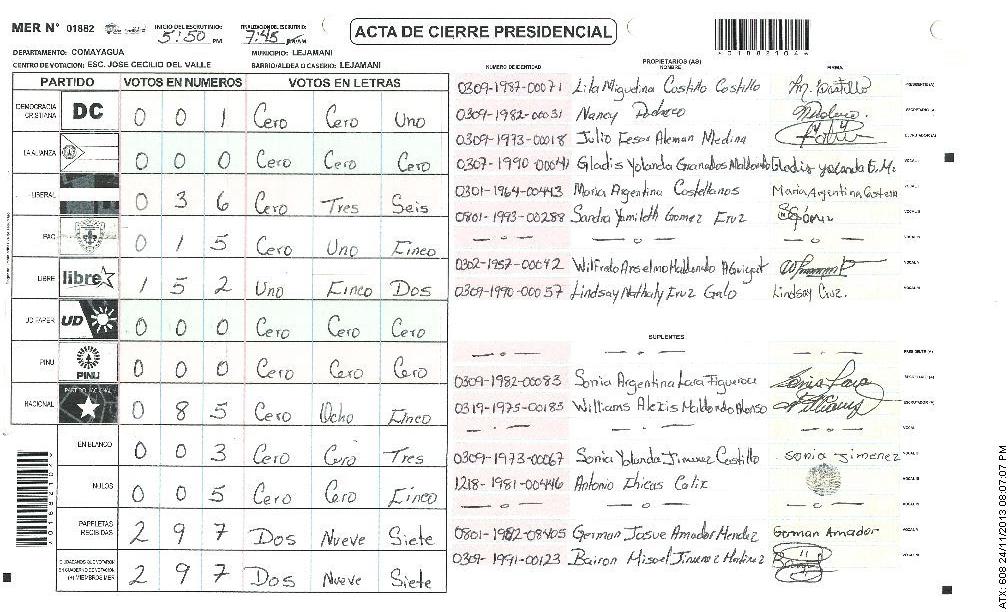 MER N° 01882 INICIO DEL ESCRUTINIO: 5:50 PM FINALIZACION DEL ESCRUTINIO: 7:45
ACTA DE CIERRE PRESIDENCIAL
01882104
DEPARTAMENTO: COMAYAGUA MUNICIPIO: LEJAMANI
CENTRO DE VOTACION: ESC. JOSE CECILIO DEL VALLE BARRIO/ALDEA O CASERIO: LEJAMANI
PARTIDO VOTOS EN NUMEROS VOTOS EN LETRAS
DEMOCRACIA CRISTIANA DC 0 0 1 Cero Cero Uno
LA ALIANZA 0 0 0 Cero Cero Cero
LIBERAL 0 3 6 Cero Tres Seis
PAC 0 1 5 Cero Uno Cinco
LIBRE libre 1 5 2 Uno Cinco Dos
UD FAPER UD 0 0 0 Cero Cero Cero
PINU PINU 0 0 0 Cero Cero Cero
NACIONAL PARTIDO NACIONAL 0 8 5 Cero Ocho Cinco
EN BLANCO 0 0 3 Cero Cero Tres
NULOS 0 0 5 Cero Cero Cinco
PAPELETAS RECIBIDAS 2 9 7 Dos Nueve Siete
CIUDADANOS QUE VOTARON EN CUADERNO DE VOTACION (+) MIEMBROS MER 2 9 7 Dos Nueve Siete
PROPIETARIOS (AS)
NUMERO DE IDENTIDAD NOMBRE FIRMA
0309-1987-00071 Lila Miguelina Costillo Costillo PRESIDENTE (A)
0309-1982-00031 Nancy Pacheco SECRETARIO (A)
0309-1973-00018 Julio Cesar Aleman Medina ESCRUTADOR (A)
0307-1990-00041 Gladis Yolanda Granados Maldonado Gladis yolanda G. M. VOCAL I
0301-1964-00443 Maria Argentina Costellanos Maria Argentina VOCAL II
0801-1993-00288 Sandra Yamileth Gomez Cruz VOCAL III
— o — — o — — o — VOCAL IV
0302-1957-00042 Wilfredo Anselmo Maldonado VOCAL V
0309-1990-00057 Lindsay Nathaly Cruz Galo Lindsay Cruz. VOCAL VI
SUPLENTES
— o — — o — — o — PRESIDENTE (A)
0309-1982-00083 Sonia Argentina Lara Figueroa Sonia Lara SECRETARIO (A)
0319-1975-00183 Williams Alexis Maldondo Alonso Williams ESCRUTADOR (A)
— o — — o — — o — VOCAL I
0309-1973-00067 Sonia Yolanda Jimenez Castillo Sonia Jimenez VOCAL II
1218-1981-00446 Antonio Chicas Calix VOCAL III
— o — — o — — o — VOCAL IV
0801-1982-08405 German Josue Amador Mendez German Amador VOCAL V
0309-1991-00123 Bairon Misael Jimenez Martinez VOCAL VI
01882104
ATX: 608 24/11/2013 08:07:07 PM